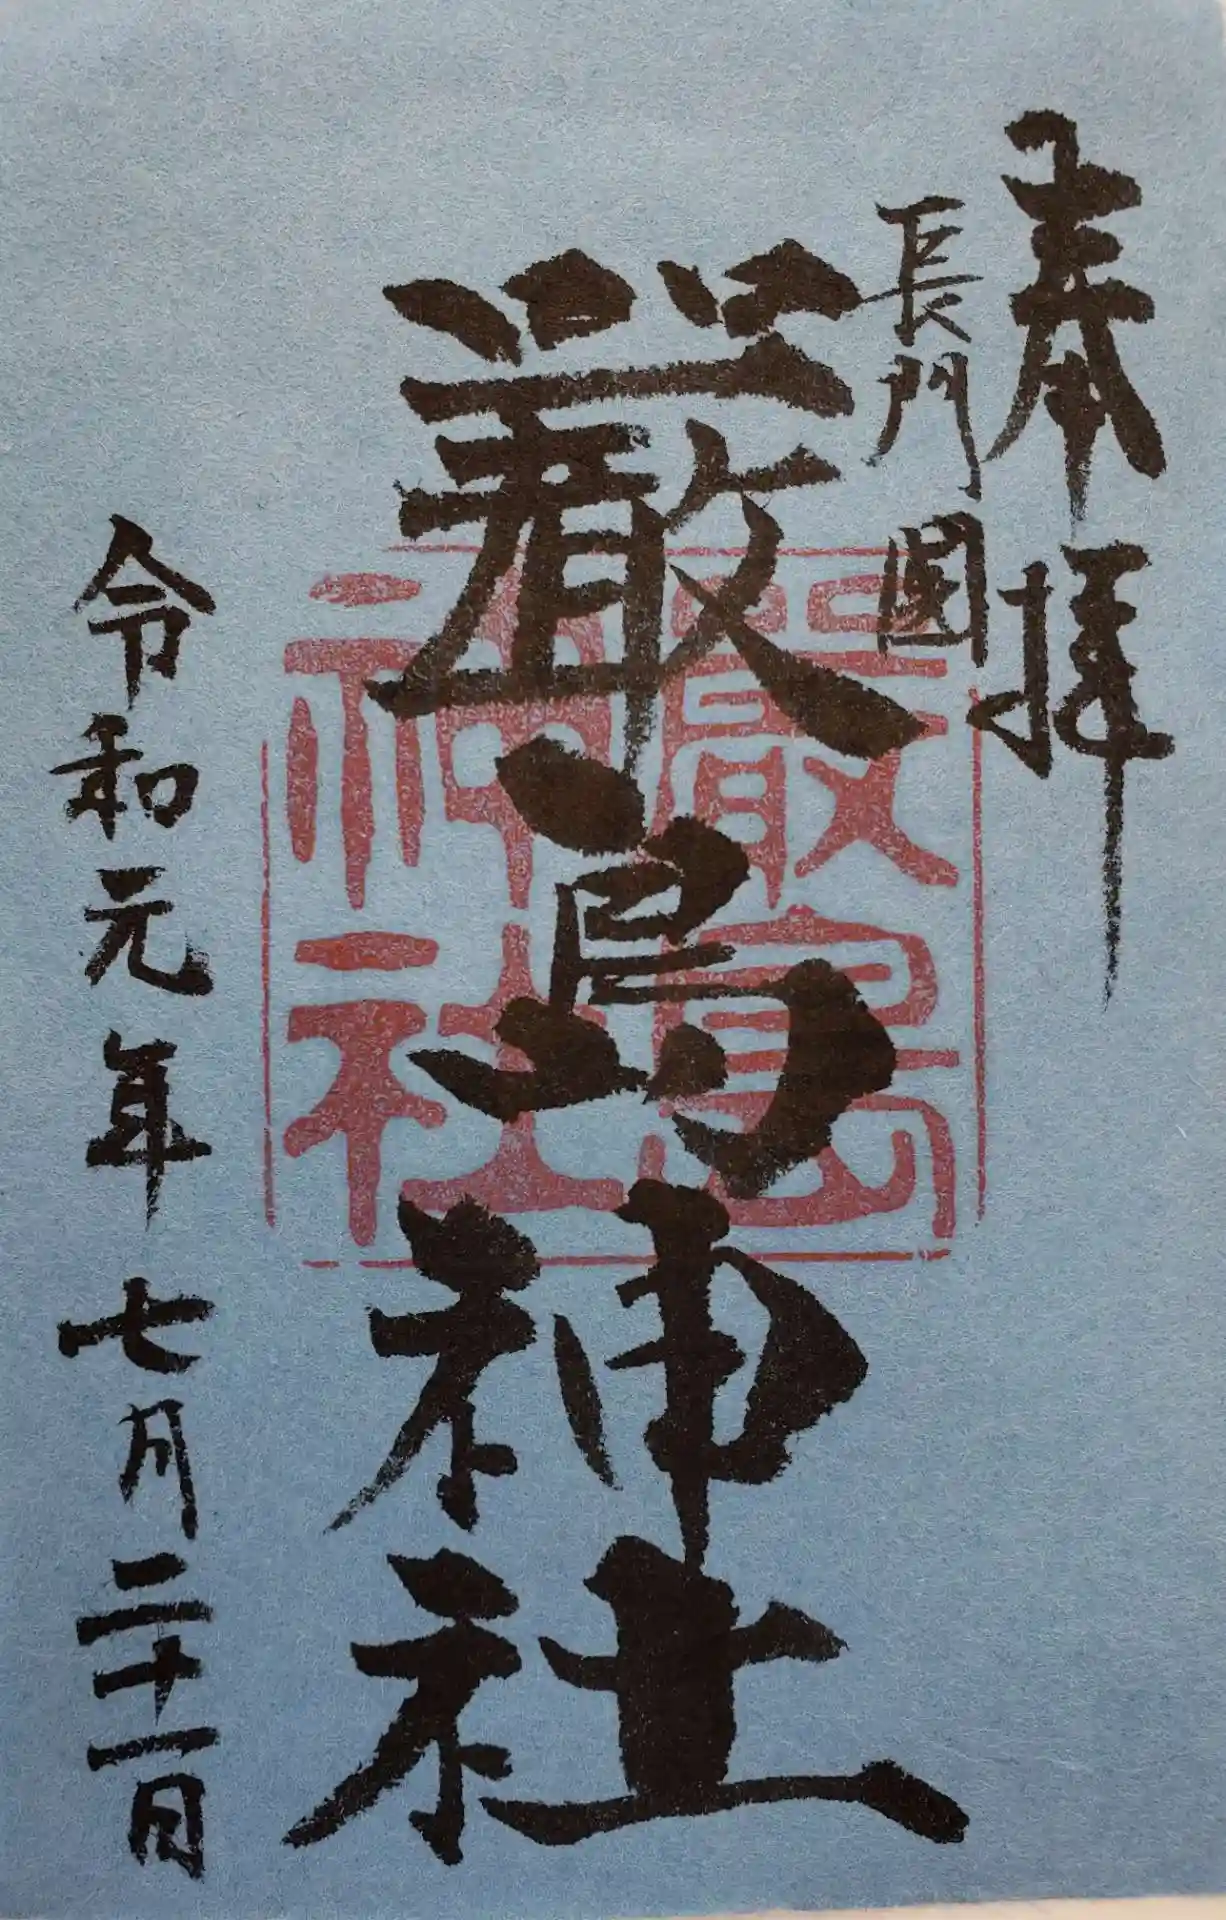 奉拝
長門國
厳島神社
厳島神社
令和元年七月二十一日